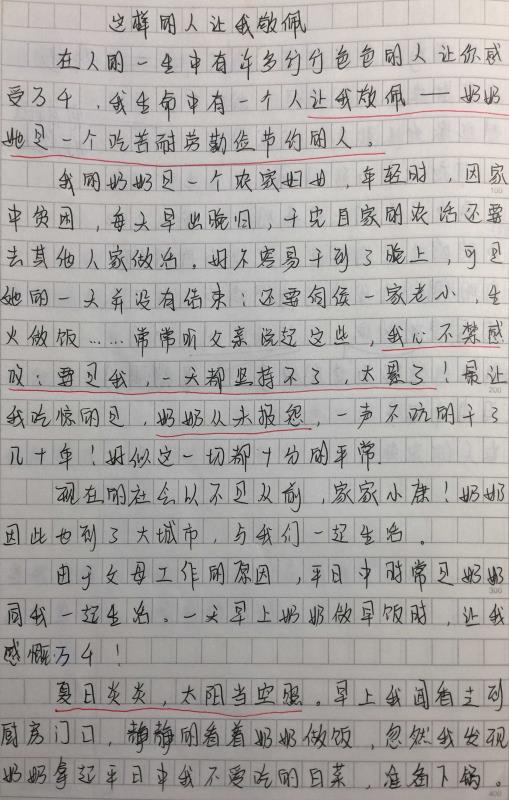 这样的人让我敬佩
在人的一生中有许多行行色色的人让你感
受万千，我生命中有一个人让我敬佩——奶奶
她是一个吃苦耐劳勤俭节约的人。
我的奶奶是一个农家妇女，年轻时，因家
中贫困，每天早出晚归，干完自家的农活还要
去其他人家做活。好不容易干到了晚上，可是
她的一天并没有结束：还要伺侯一家老小，生
火做饭……常常听父亲说起这些，我心不禁感
叹：要是我，一天都坚持不了，太累了！最让
我吃惊的是，奶奶从未报怨，一声不吭的干了
几十年！好似这一切都十分的平常.
现在的社会以不是从前，家家小康！奶奶
因此也到了大城市，与我们一起生活。
由于父母工作的原因，平日中时常是奶奶
同我一起生活。一天早上奶奶做早饭时，让我
感慨万千！
夏日炎炎，太阳当空照。早上我闻着走到
厨房门口，静静的看着奶奶做饭，忽然我发现
奶奶拿起平日中我不爱吃的白菜，准备下锅。
100
200
300
400